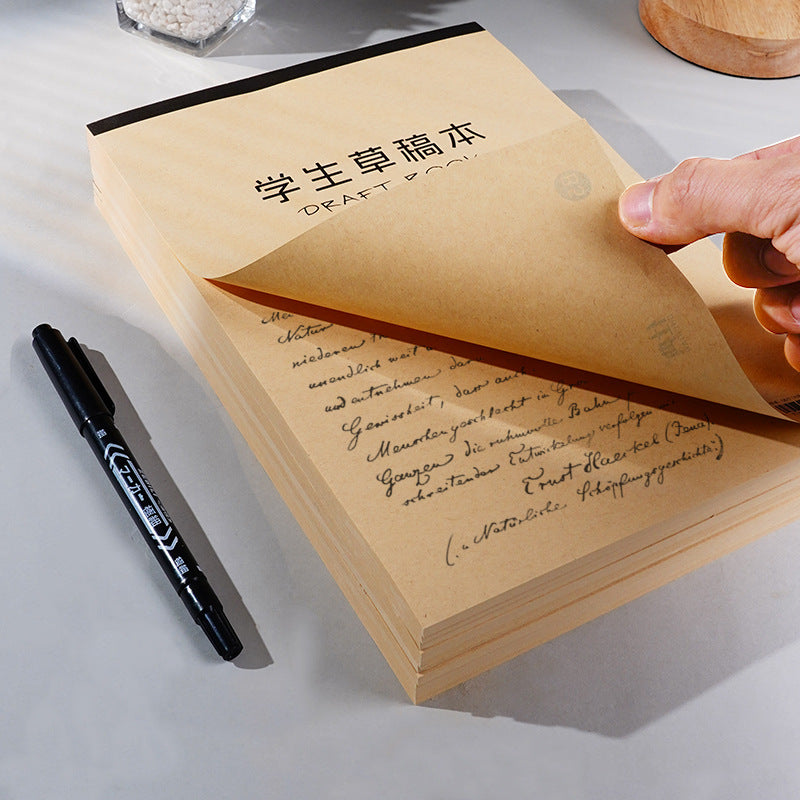 学生草稿本
DRAFT BOOK
Natur
niederen
unendlich weit
und entnehmen
Gewissheit, dass auch
Menschengeschlecht in
Ganzen die ruhmvolle Bahn
schreitender Entwickelung verfolgen
Ernst Haeckel (Jena).
(„Natürliche Schöpfungsgeschichte“)
マーカー